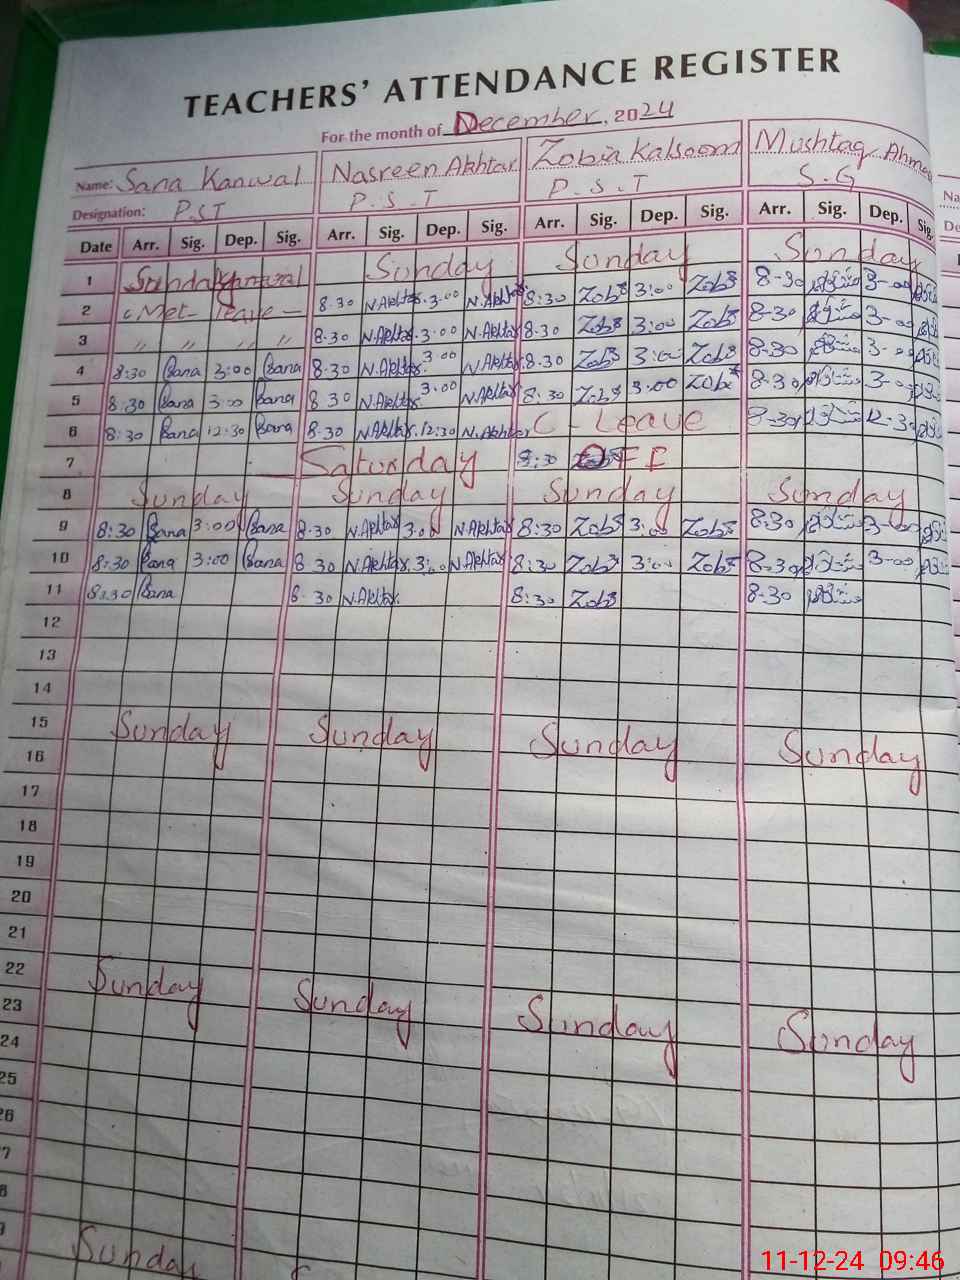 TEACHERS' ATTENDANCE REGISTER
For the month of December, 2024
Name: Sana Kanwal Nasreen Akhtar Zobia Kalsoom Mushtaq Ahmed
Designation: P.S.T P.S.T P.S.T S.G
Date Arr. Sig. Dep. Sig. Arr. Sig. Dep. Sig. Arr. Sig. Dep. Sig. Arr. Sig. Dep. Sig.
1 Sunday Sunday Sunday Sunday
2 Met- leave - 8.30 N.Akhtar 3:00 N.Akhtar 8:30 Zobi 3:00 Zobi 8-30 3-00
3 " " " " 8.30 N.Akhtar 3:00 N.Akhtar 8.30 Zobi 3:00 Zobi 8-30 3-00
4 8:30 Sana 3:00 Sana 8.30 N.Akhtar 3:00 N.Akhtar 8.30 Zobi 3:00 Zobi 8-30 3-00
5 8:30 Sana 3:00 Sana 8 30 N.Akhtar 3:00 N.Akhtar 8:30 Zobi 3:00 Zobi 8-30 3-00
6 8:30 Sana 12:30 Sana 8.30 N.Akhtar 12:30 N.Akhtar C - Leave 8-30 12-30
7 Saturday 8:30 OFF
8 Sunday Sunday Sunday Sunday
9 8:30 Sana 3:00 Sana 8.30 N.Akhtar 3:00 N.Akhtar 8:30 Zobi 3:00 Zobi 8-30 3-00
10 8:30 Sana 3:00 Sana 8 30 N.Akhtar 3:00 N.Akhtar 8:30 Zobi 3:00 Zobi 8-30 3-00
11 8:30 Sana 8.30 N.Akhtar. 8:30 Zobi 8-30
12
13
14
15 Sunday Sunday Sunday Sunday
16
17
18
19
20
21
22 Sunday Sunday Sunday Sunday
23
24
25
26
Sunday
11-12-24 09:46